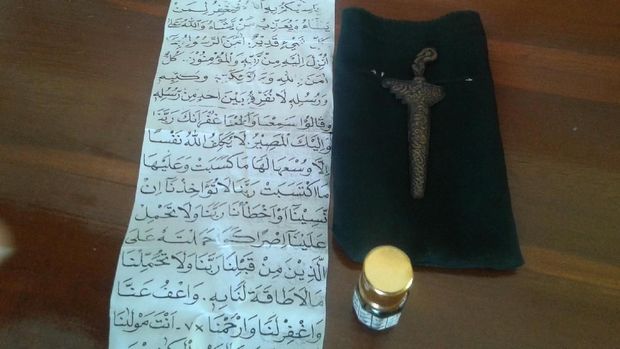 يحاسبكم به الله فيغفر لمن
يشاء ويعذب من يشاء والله على
كل شيء قدير. آمن الرسول بما
أنزل إليه من ربه والمؤمنون. كل
آمن بالله وملائكته وكتبه
ورسله لا نفرق بين احد من رسله
وقالوا سمعنا واطعنا غفرانك ربنا
واليك المصير. لا يكلف الله نفسا
إلا وسعها لها ما كسبت وعليها
ما اكتسبت ربنا لا تؤاخذنا إن
نسينا او اخطأنا ربنا ولا تحمل
علينا إصرا كما حملته على
الذين من قبلنا ربنا ولا تحملنا
ما لا طاقة لنا به. واعف عنا
واغفر لنا وارحمنا ٧×. انت مولانا